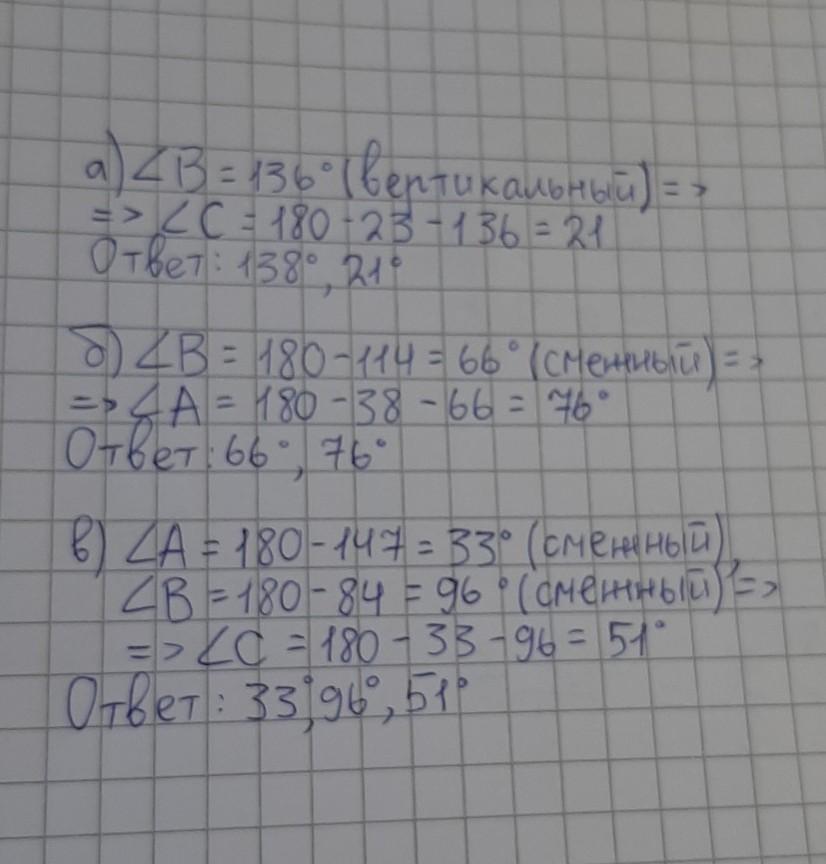 а) ∠B = 136° (вертикальный) =>
=> ∠C = 180 - 23 - 136 = 21
Ответ: 138°, 21°
б) ∠B = 180 - 114 = 66° (смежный) =>
=> ∠A = 180 - 38 - 66 = 76°
Ответ: 66°, 76°
в) ∠A = 180 - 147 = 33° (смежный),
∠B = 180 - 84 = 96° (смежный) =>
=> ∠C = 180 - 33 - 96 = 51°
Ответ: 33°, 96°, 51°